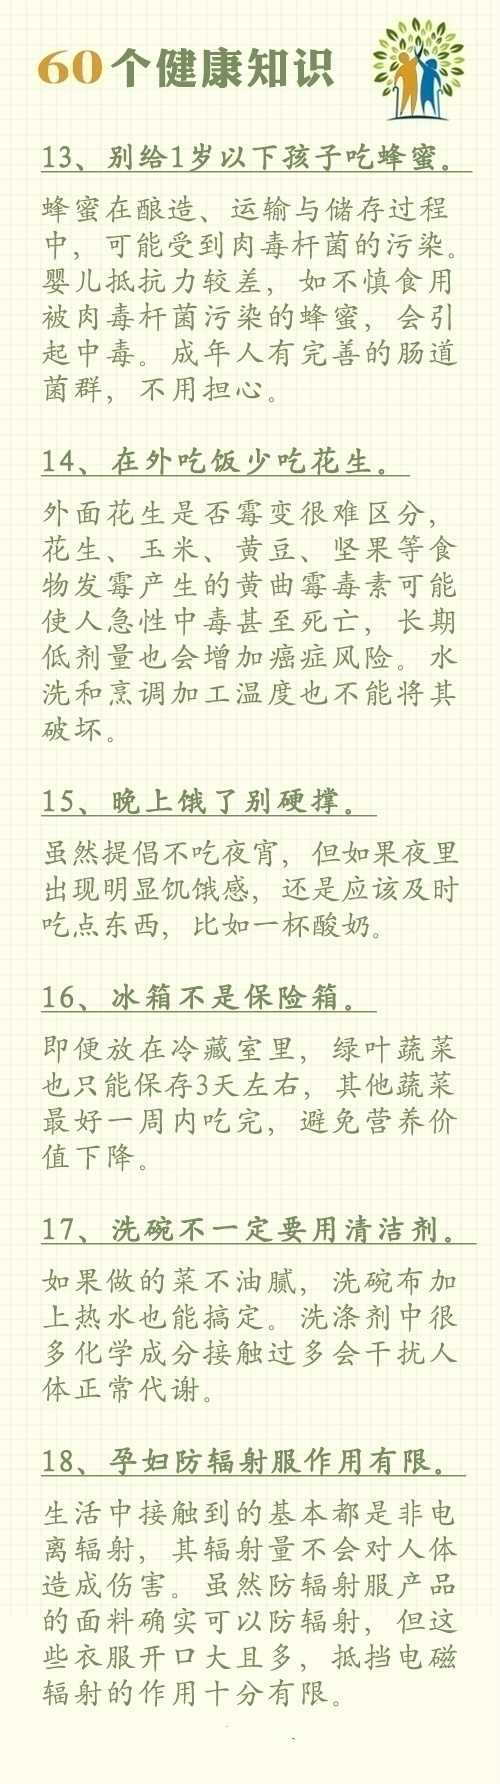 60个健康知识
13、别给1岁以下孩子吃蜂蜜。
蜂蜜在酿造、运输与储存过程
中，可能受到肉毒杆菌的污染。
婴儿抵抗力较差，如不慎食用
被肉毒杆菌污染的蜂蜜，会引
起中毒。成年人有完善的肠道
菌群，不用担心。
14、在外吃饭少吃花生。
外面花生是否霉变很难区分，
花生、玉米、黄豆、坚果等食
物发霉产生的黄曲霉毒素可能
使人急性中毒甚至死亡，长期
低剂量也会增加癌症风险。水
洗和烹调加工温度也不能将其
破坏。
15、晚上饿了别硬撑。
虽然提倡不吃夜宵，但如果夜里
出现明显饥饿感，还是应该及时
吃点东西，比如一杯酸奶。
16、冰箱不是保险箱。
即便放在冷藏室里，绿叶蔬菜
也只能保存3天左右，其他蔬菜
最好一周内吃完，避免营养价
值下降。
17、洗碗不一定要用清洁剂。
如果做的菜不油腻，洗碗布加
上热水也能搞定。洗涤剂中很
多化学成分接触过多会干扰人
体正常代谢。
18、孕妇防辐射服作用有限。
生活中接触到的基本都是非电
离辐射，其辐射量不会对人体
造成伤害。虽然防辐射服产品
的面料确实可以防辐射，但这
些衣服开口大且多，抵挡电磁
辐射的作用十分有限。